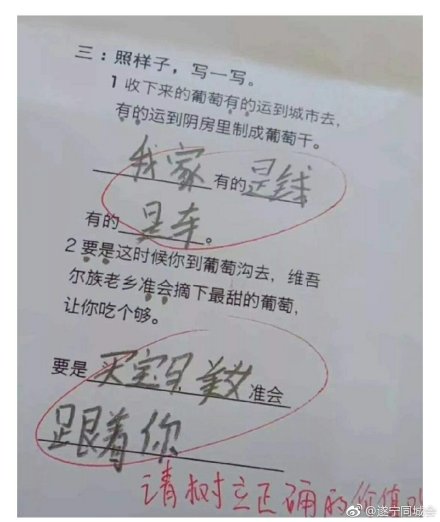 三：照样子，写一写。
1 收下来的葡萄有的运到城市去，
有的运到阴房里制成葡萄干。
我家有的是钱
有的是车。
2 要是这时候你到葡萄沟去，维吾
尔族老乡准会摘下最甜的葡萄，
让你吃个够。
要是买宝马美女准会
跟着你
请树立正确的价值
@遂宁同城会